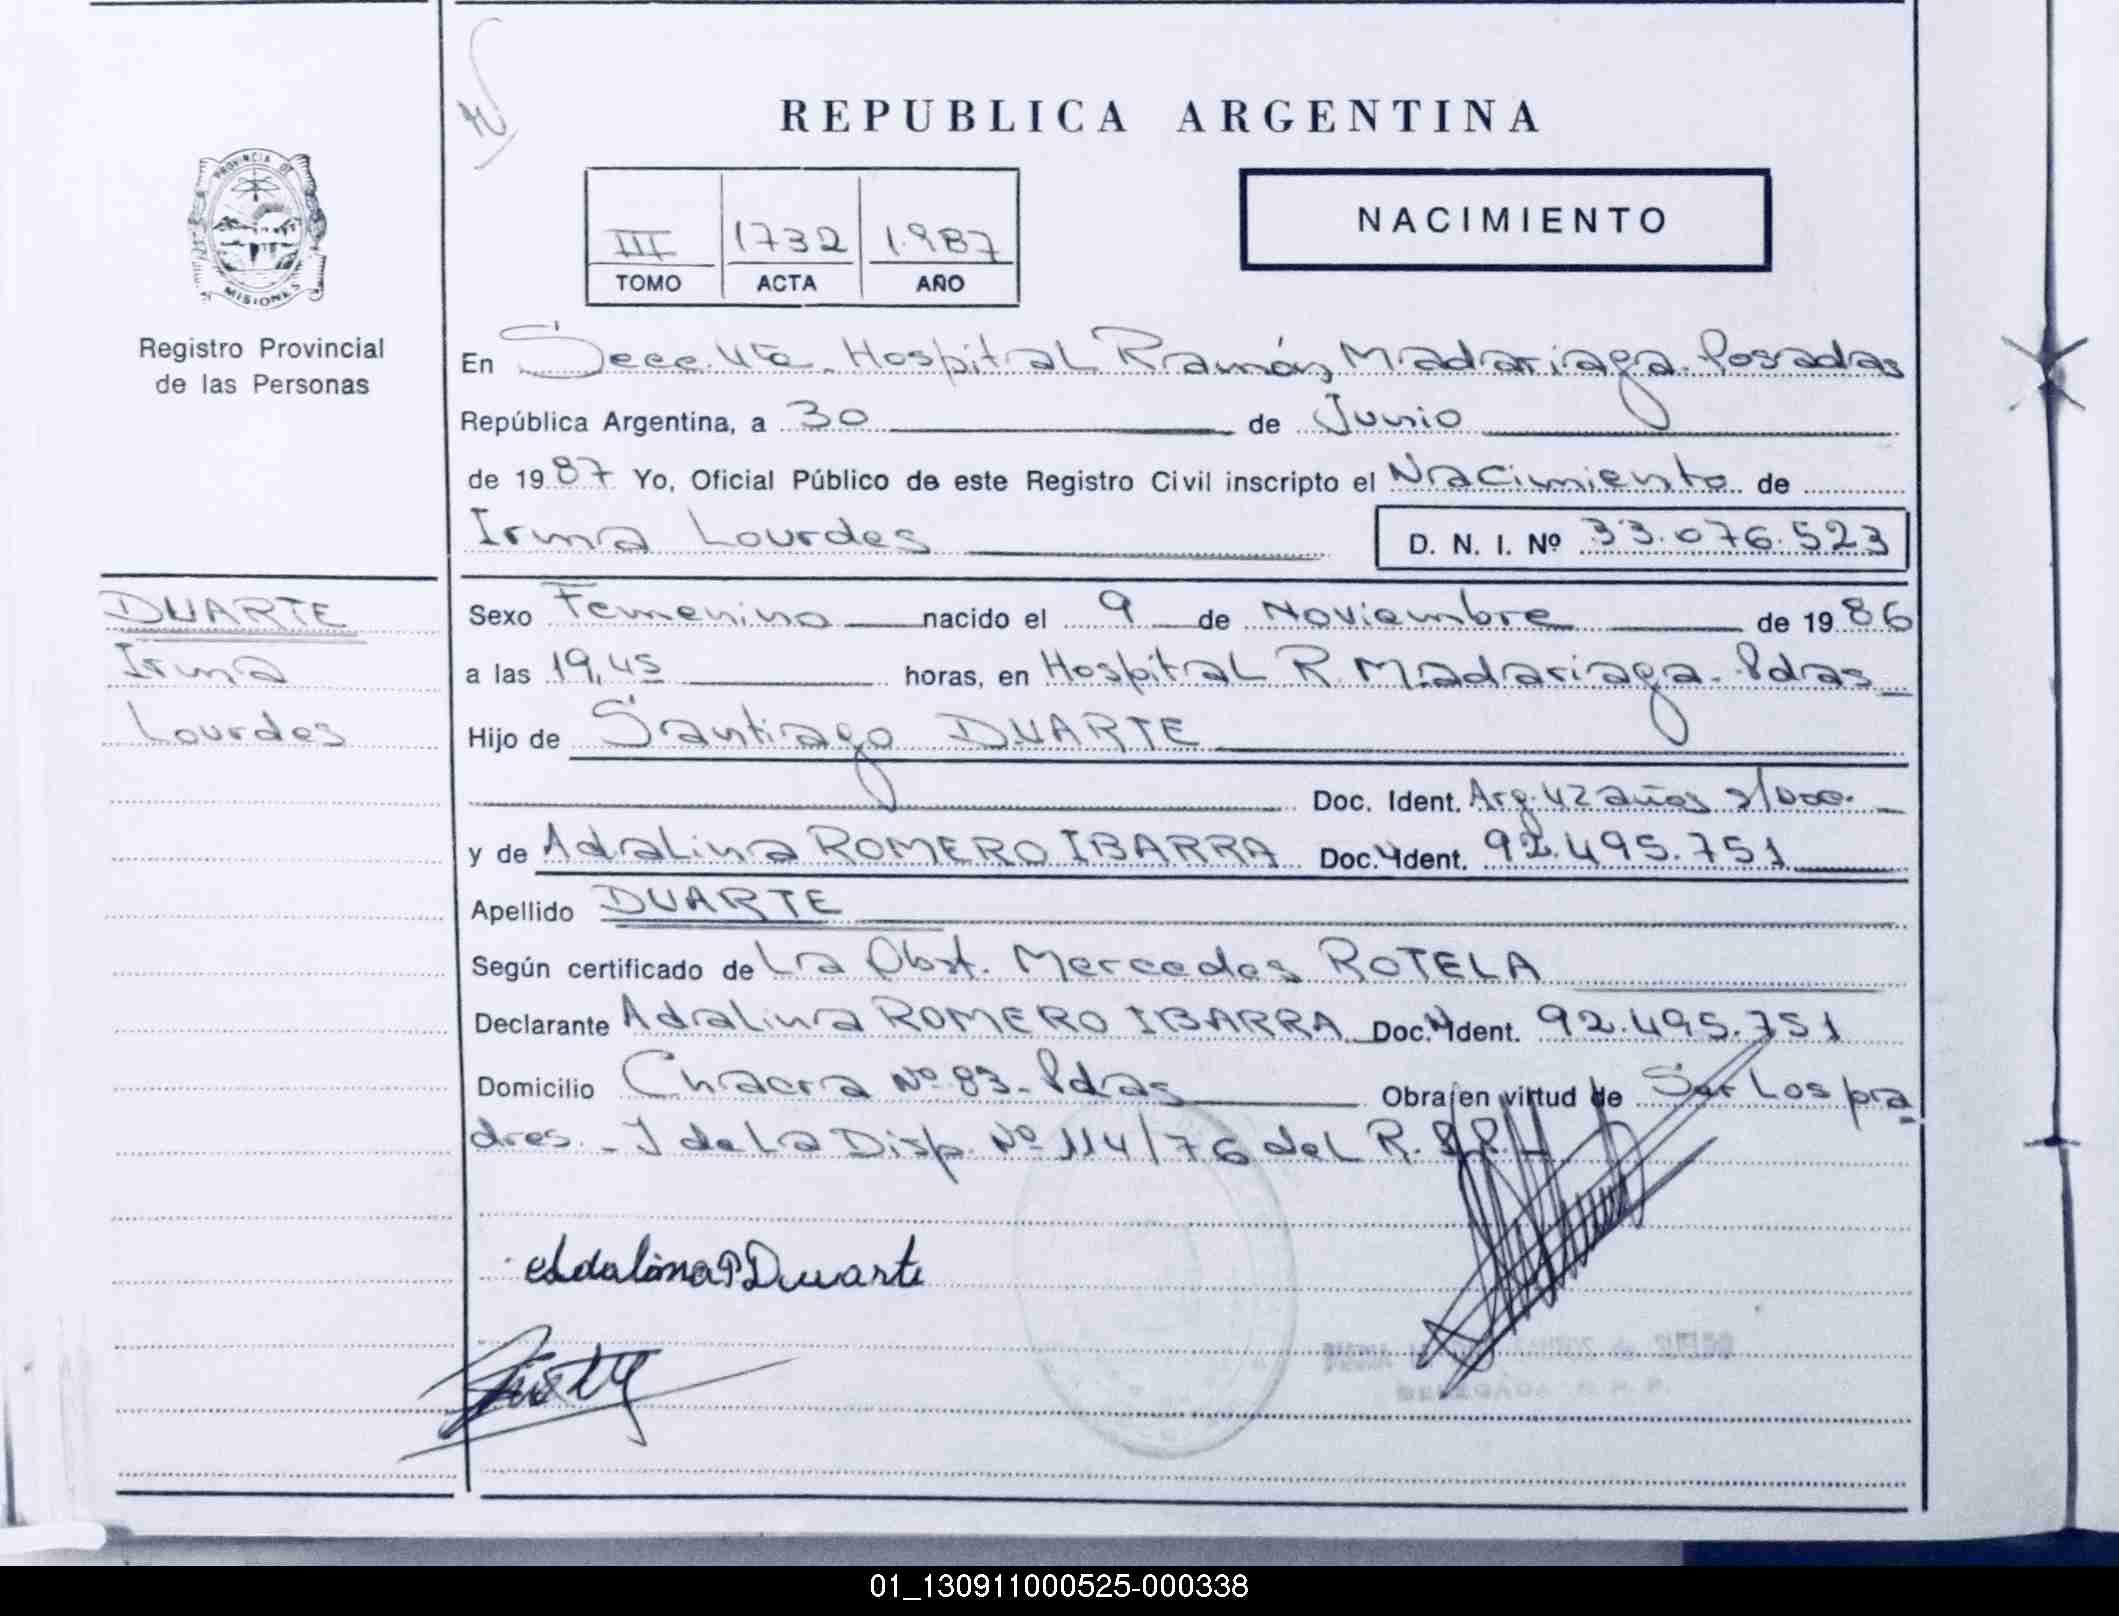 REPUBLICA ARGENTINA
PROVINCIA DE
MISIONES
Registro Provincial
de las Personas
NACIMIENTO
III 1732 1.987
TOMO ACTA AÑO
En Secc. 4ta. Hospital Ramón Madariaga. Posadas
República Argentina, a 30 de Junio
de 1987 Yo, Oficial Público de este Registro Civil inscripto el Nacimiento de
Irma Lourdes D. N. I. Nº 33.076.523
DUARTE
Irma
Lourdes
Sexo Femenino nacido el 9 de Noviembre de 1986
a las 19,45 horas, en Hospital R. Madariaga. Pdas
Hijo de Santiago DUARTE
Doc. Ident. Arg. 42 años s/doc.
y de Adalina ROMERO IBARRA Doc. Ident. 92.495.751
Apellido DUARTE
Según certificado de La Obst. Mercedes ROTELA
Declarante Adalina ROMERO IBARRA Doc. Ident. 92.495.751
Domicilio Chacra Nº 83- Pdas Obra en virtud de Ser Los pa
dres. - J de La Disp. Nº 114/76 del R.P.P.
Adalina Duarte
DELEGADA R. P. P.
01_130911000525-000338